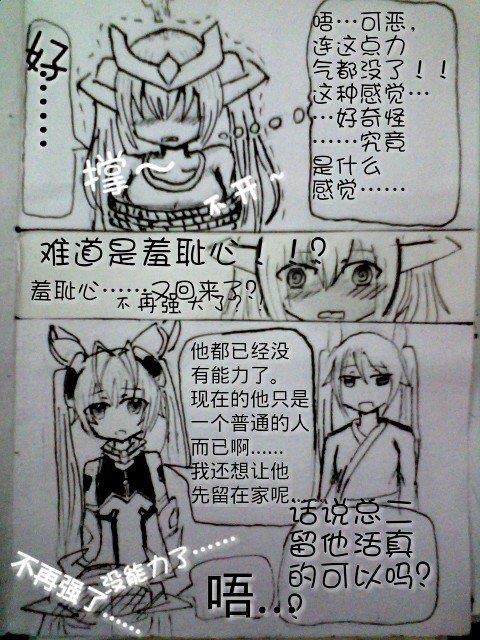 好……
唔…可恶，
连这点力
气都没了！！
这种感觉…
…好奇怪
……究竟
是什么
感觉……
撑～
不开～
难道是羞耻心！！?
羞耻心……又回来了?
不再强大了
他都已经没
有能力了。
现在的他只是
一个普通的人
而已啊……
我还想让他
先留在家呢…
话说总二
留他活真
的可以吗?
?
不再强了……
没能力了……
唔..